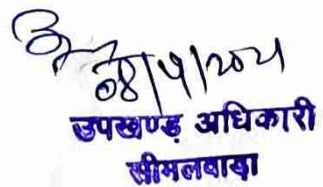 08/4/2021
उपखण्ड़ अधिकारी
सीमलवाड़ा